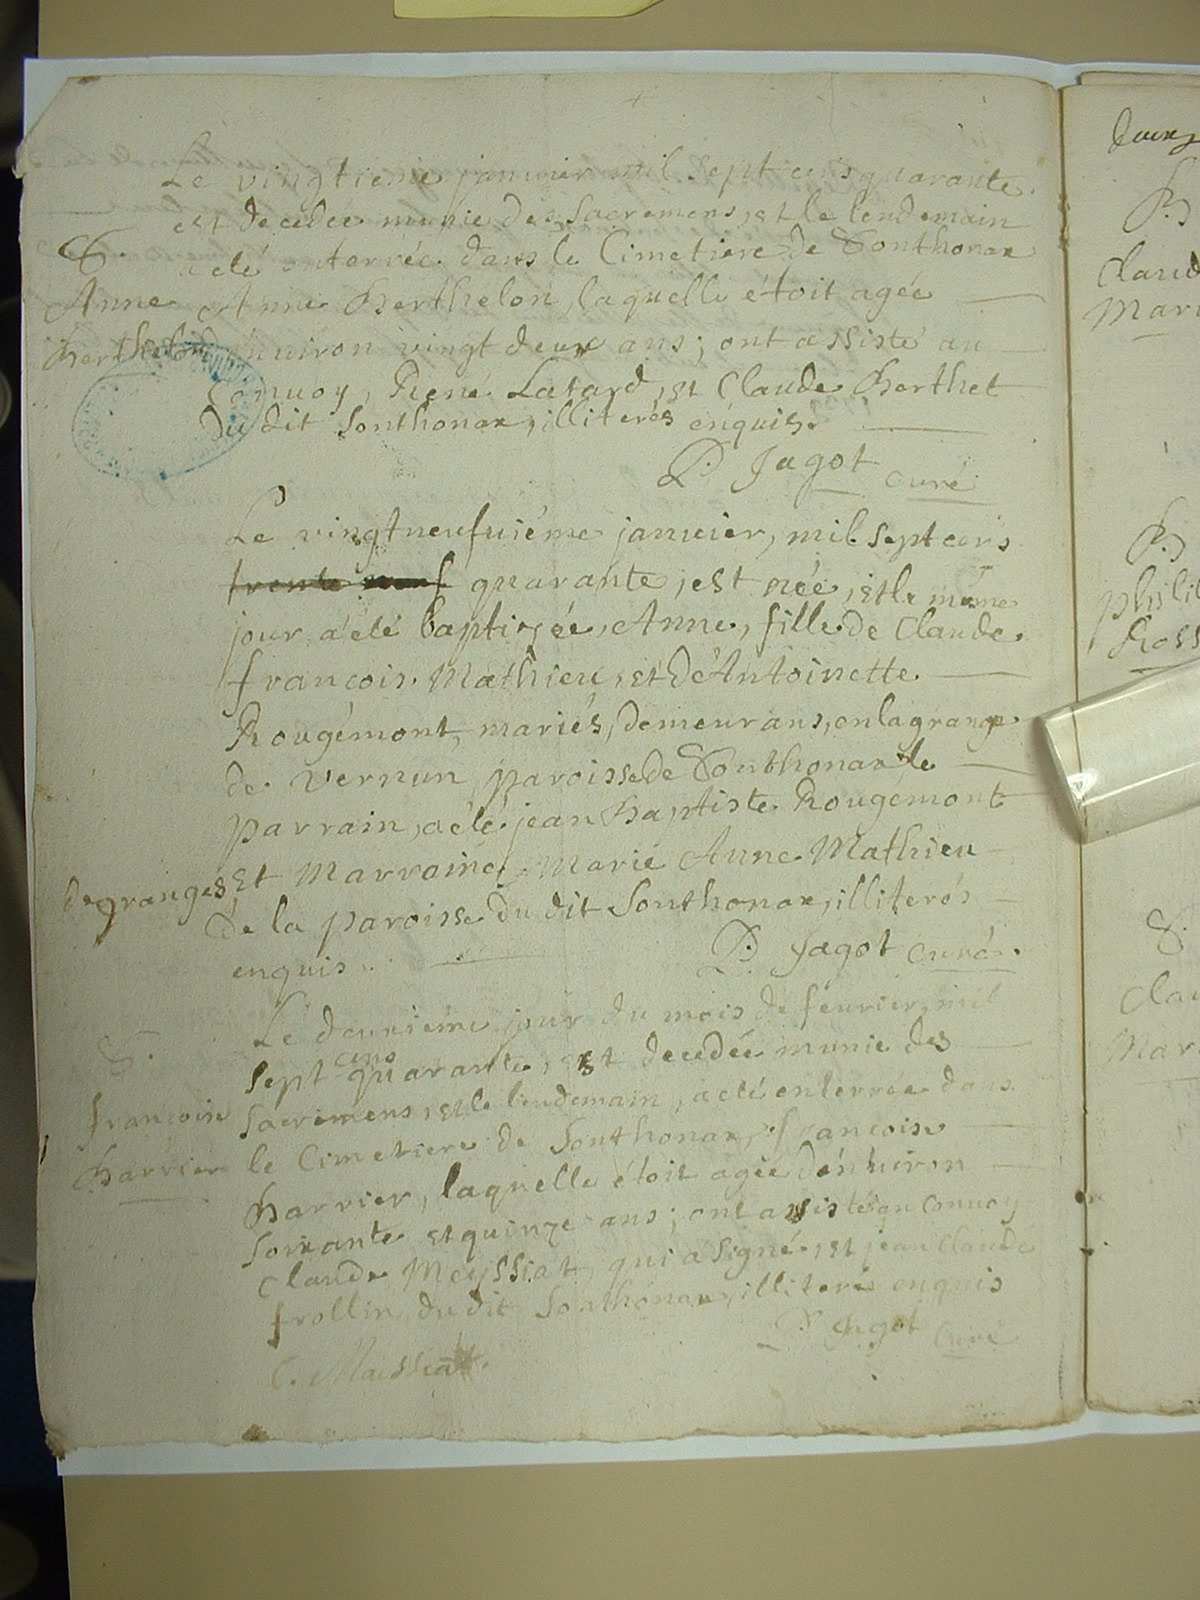 Le vingtieme janvier mil sept cens quarante
est decedée munie des sacremens, et le lendemain
a eté enterrée dans le Cimetiere de Sonthonax
S.
Anne
Berthelon
Anne Berthelon, laquelle étoit agée
environ vingt deux ans; ont assisté au
convoy, René Latard, et Claude Berthet
du dit Sonthonax, illiterés enquis.
P. Jagot curé
Le vingtneufuiéme janvier, mil sept cens
trente neuf quarante, est née, et le mème
jour a eté baptizée, Anne, fille de Claude
françois Mathieu, et d'Antoinette
Rougémont, mariés, demeurans, en la grange
de Vernun, paroisse de Sonthonax le
parrain, a eté jean Baptiste Rougemont
degranges, Et Marraine, Marie Anne Mathieu
de la paroisse du dit Sonthonax, illiterés
enquis.
P. Jagot curé.
S.
francoise
Barrier
Le deuxieme jour du mois de féurier, mil
sept cens quarante, est decedée munie des
sacremens, et le lendemain, a eté enterree dans
le Cimetiere de Sonthonax, francoise
Barrier, laquelle étoit agée d'enuiron
soixante et quinze ans; ont assisté au conuoy
Claude Meyssiat, qui a signé, et jean Claude
frollin, du dit Sonthonax, illiteré enquis
P. Jagot curé
C. Maissiat.
deux
B
Claud
Mari
B
phili
Ross
S.
Clau
Mar